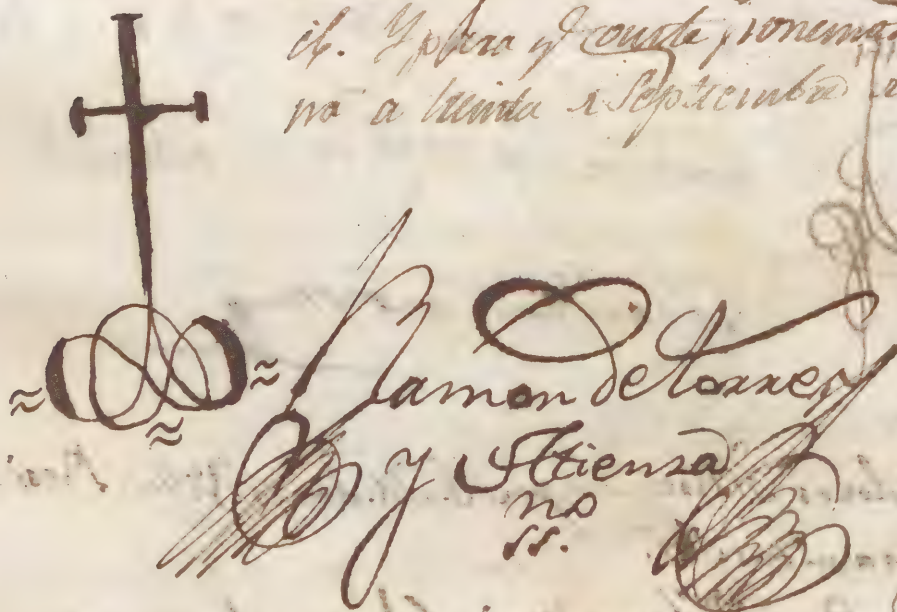 Y para q.^e conste
no a treinta d Septiembre
Ramon de torres
y Atienza
no
ss.